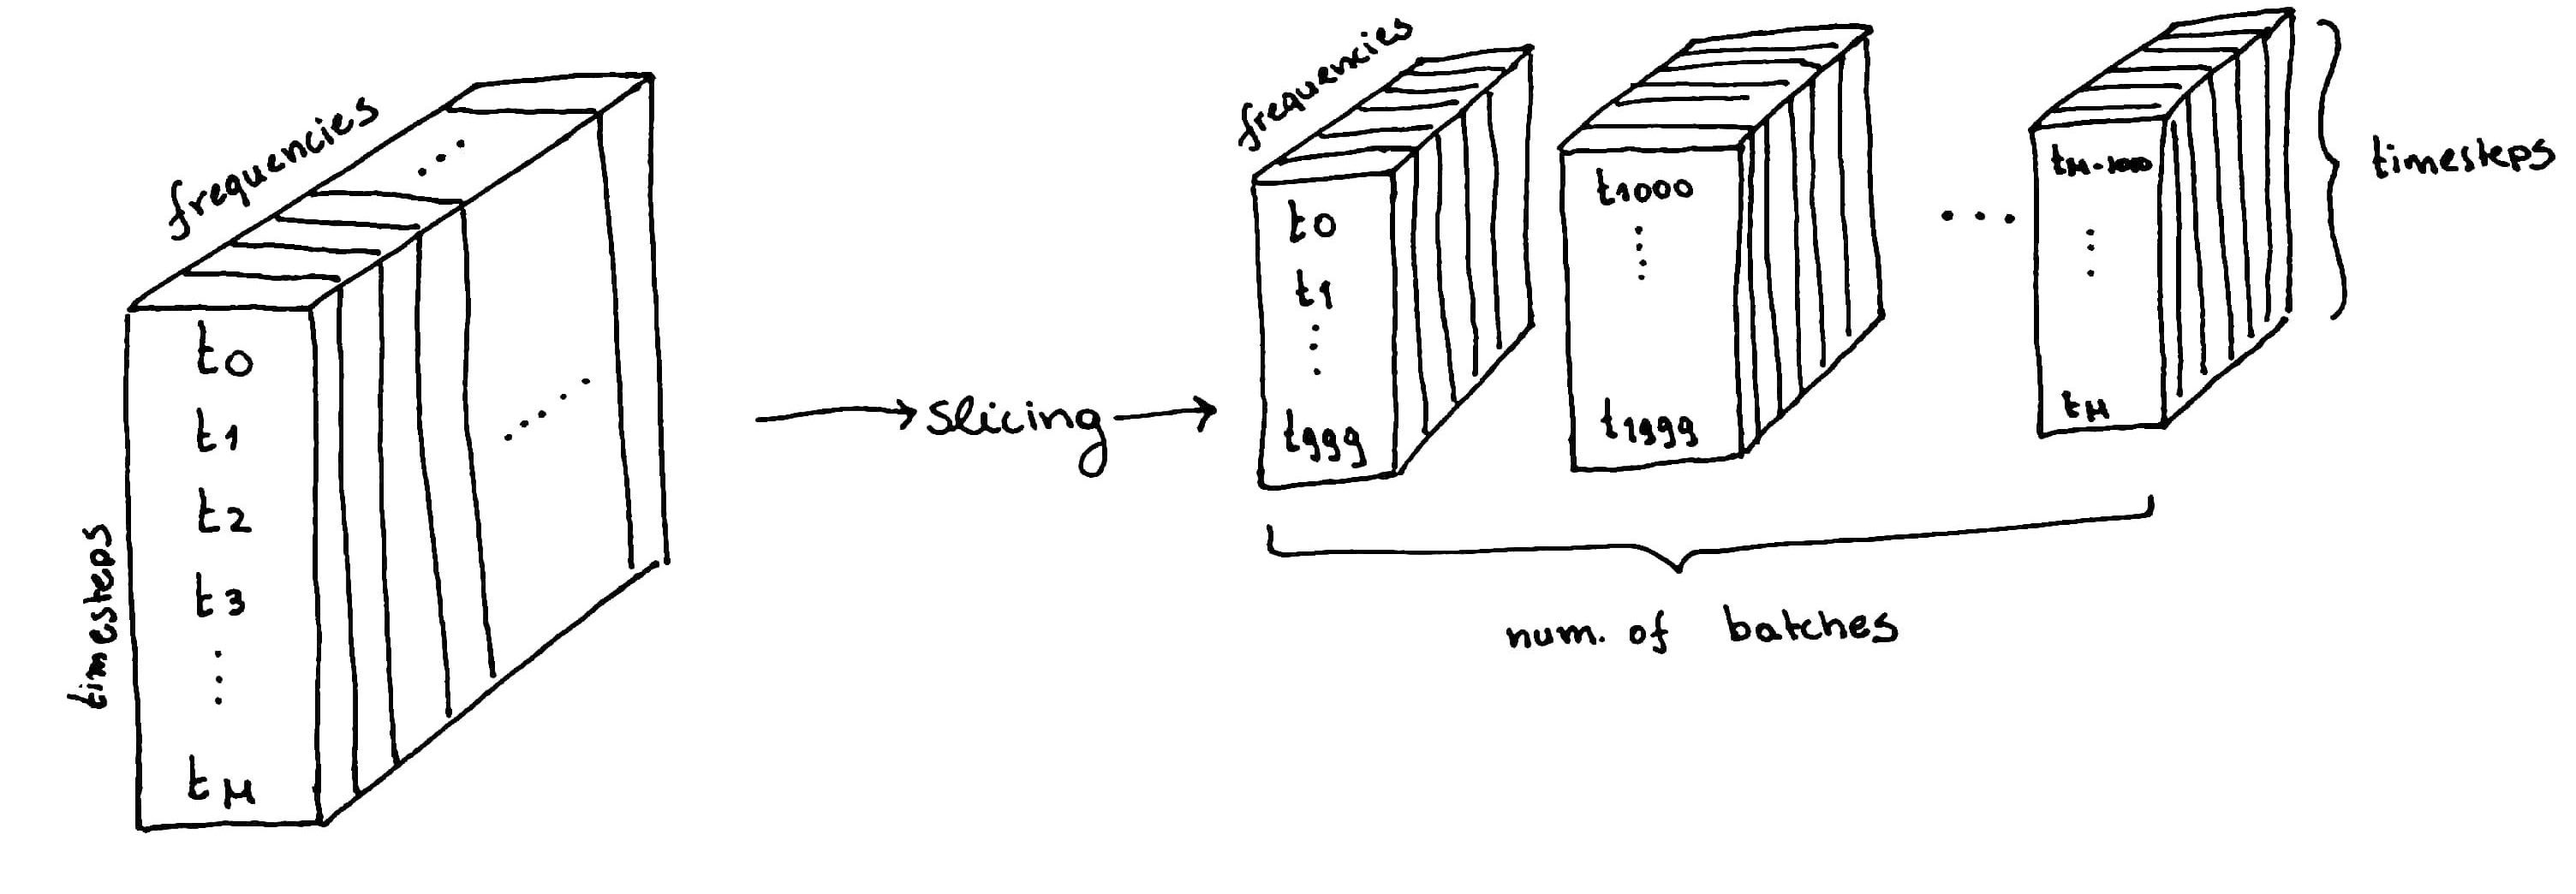 frequencies
timesteps
t0
t1
t2
t3
⋮
tM
slicing
frequencies
t0
t1
⋮
t999
t1000
⋮
t1999
...
tM-1000
⋮
tM
timesteps
num. of batches